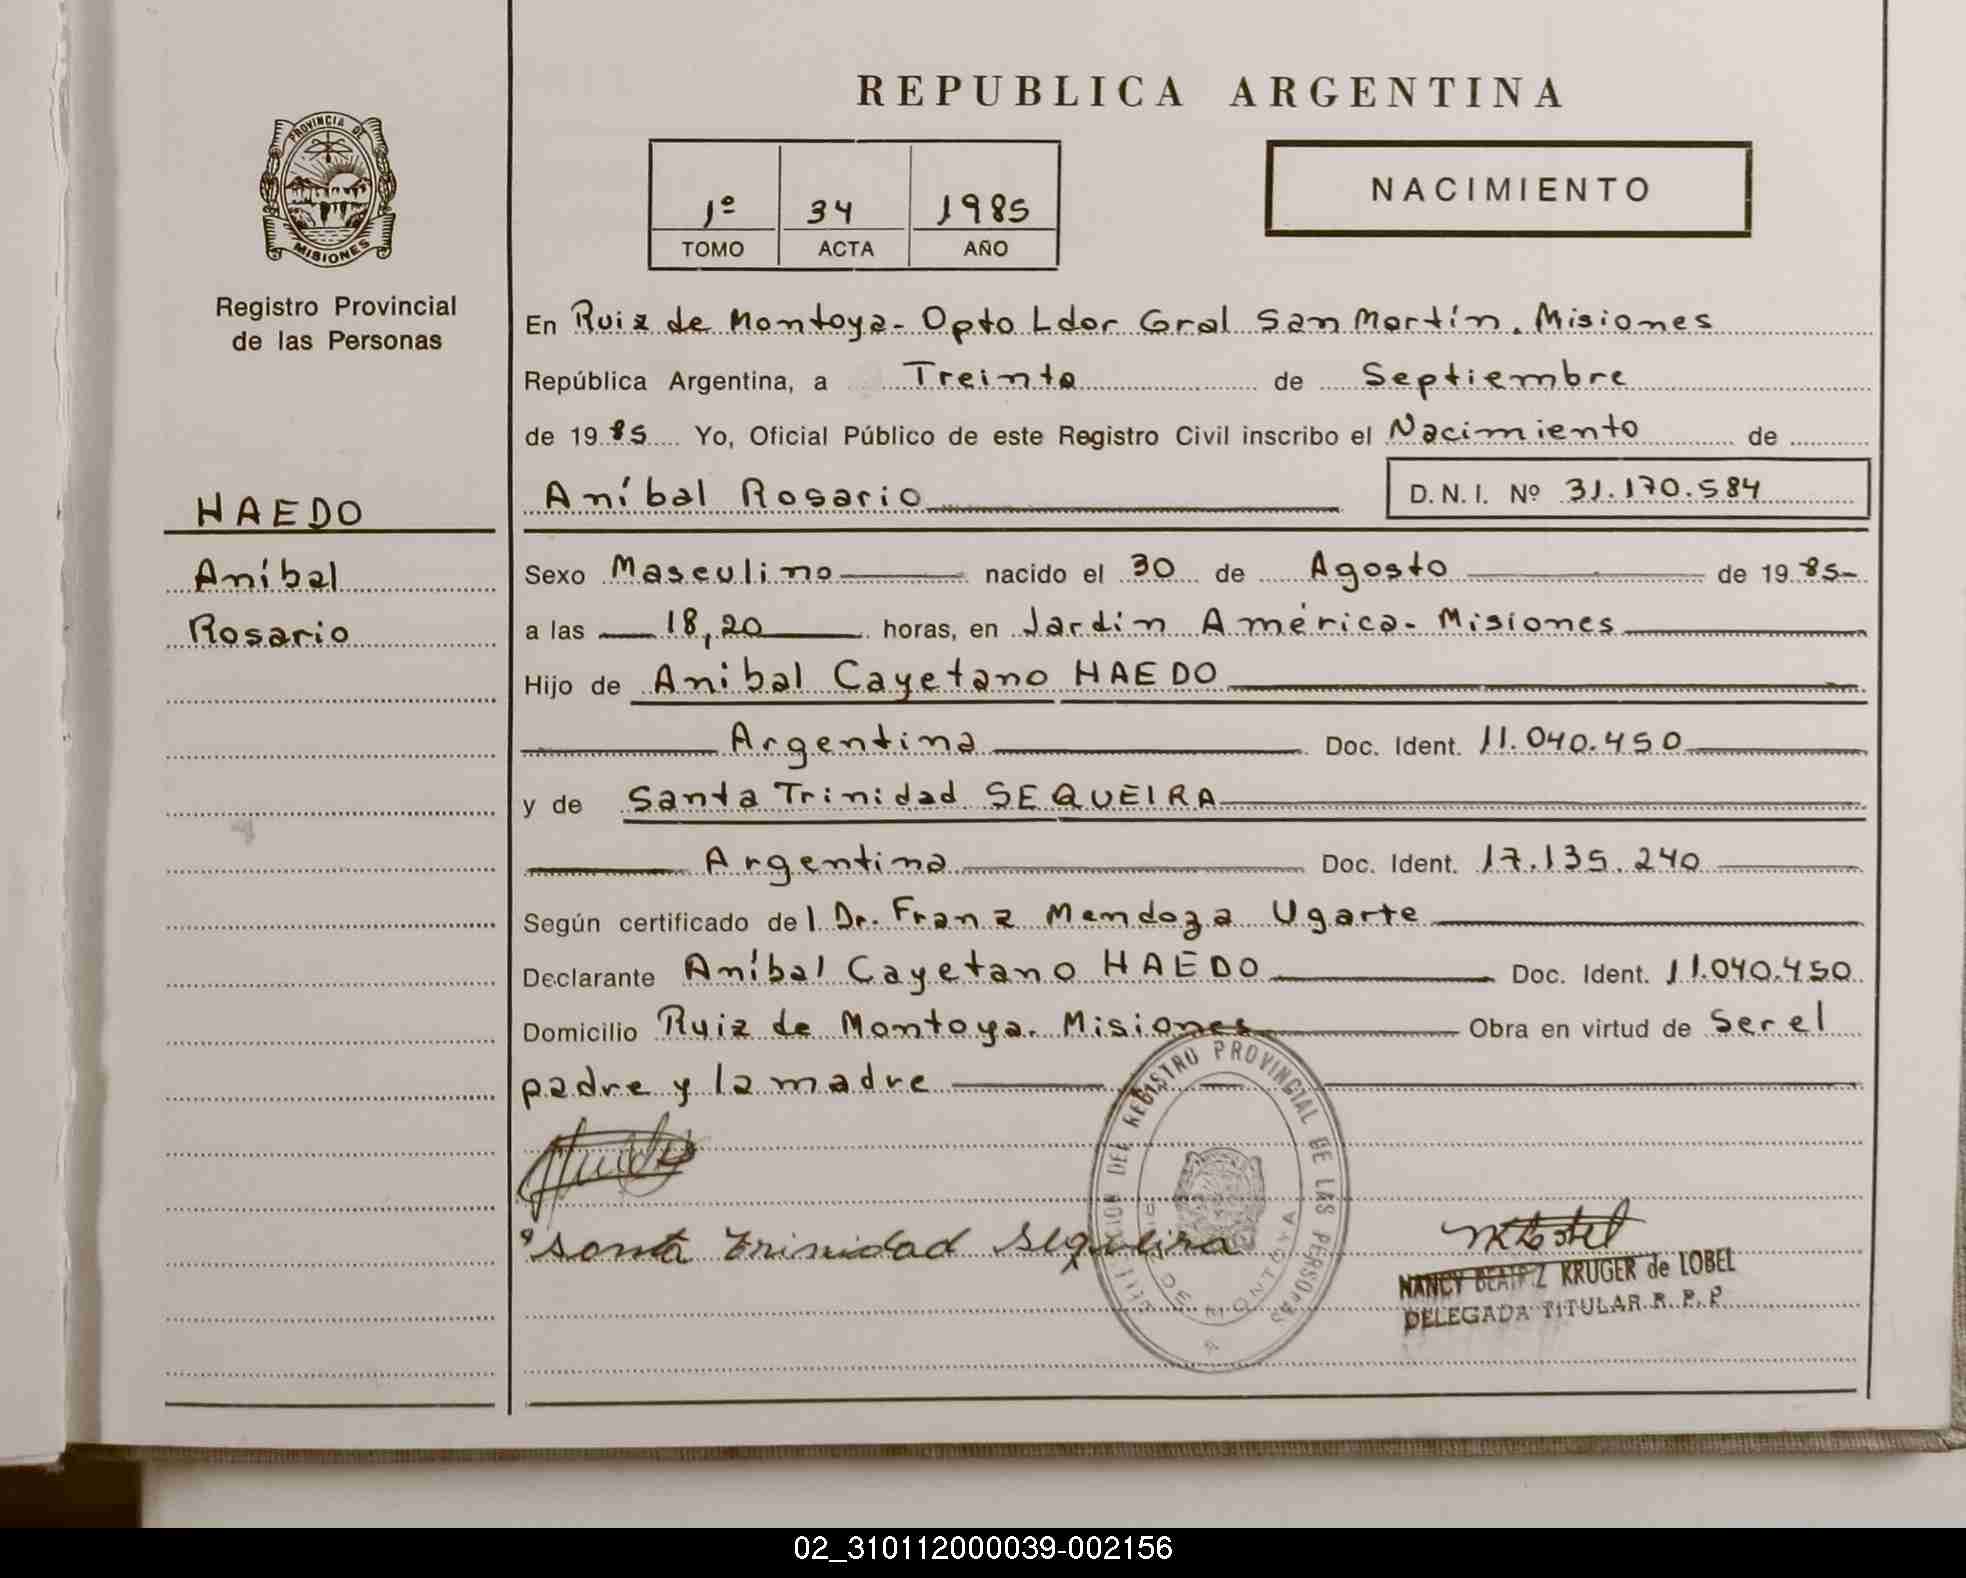 REPUBLICA ARGENTINA
PROVINCIA DE
MISIONES
Registro Provincial
de las Personas
1º 34 1985
TOMO ACTA AÑO
NACIMIENTO
En Ruiz de Montoya- Dpto Ldor Gral San Martín. Misiones
República Argentina, a Treinta de Septiembre
de 1985 Yo, Oficial Público de este Registro Civil inscribo el Nacimiento de
Aníbal Rosario D. N. I. Nº 31.170.584
HAEDO
Aníbal
Rosario
Sexo Masculino nacido el 30 de Agosto de 1985-
a las 18,20 horas, en Jardín América- Misiones
Hijo de Anibal Cayetano HAEDO
Argentina Doc. Ident. 11.040.450
y de Santa Trinidad SEQUEIRA
Argentina Doc. Ident. 17.135.240
Según certificado del Dr. Franz Mendoza Ugarte
Declarante Aníbal Cayetano HAEDO Doc. Ident. 11.040.450
Domicilio Ruiz de Montoya. Misiones Obra en virtud de Ser el
padre y la madre
Santa Trinidad Seqveira
DEL REGISTRO PROVINCIAL DE LAS PERSONAS
DE MONTOYA
NANCY BEATRIZ KRUGER de LOBEL
DELEGADA TITULAR R. P. P.
02_310112000039-002156